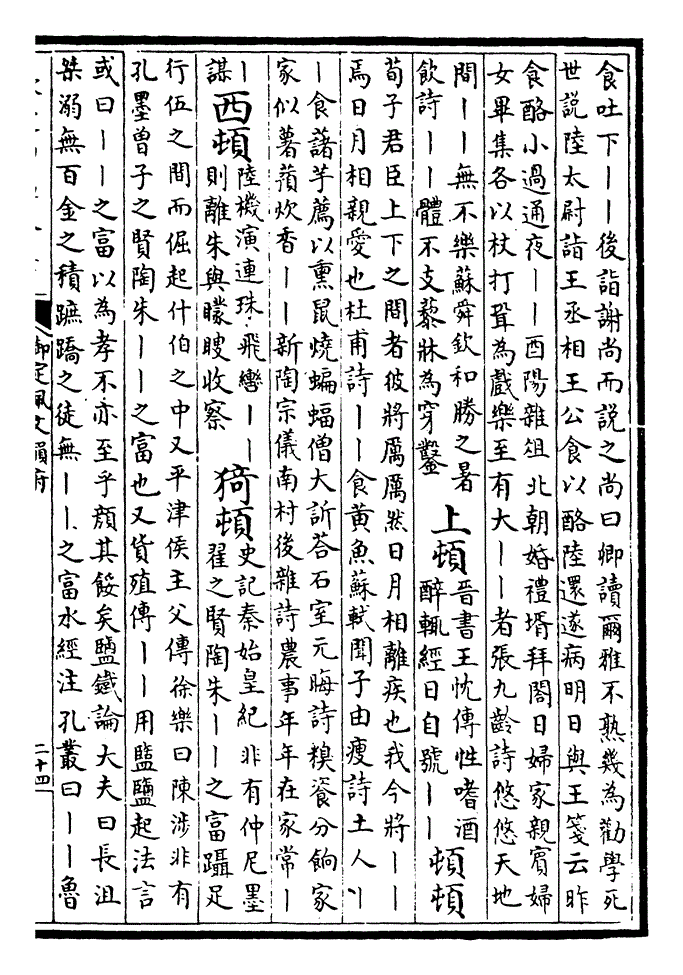 食吐下｜｜後詣謝尚而說之尚曰卿讀爾雅不熟幾為勸學死
世說陸太尉詣王丞相王公食以酪陸還遂病明日與王箋云昨
食酪小過通夜｜｜酉陽雜俎北朝婚禮壻拜閣日婦家親賓婦
女畢集各以杖打聟為戲樂至有大｜｜者張九齡詩悠悠天地
間｜｜無不樂蘇舜欽和勝之暑
飲詩｜｜體不支藜牀為穿鑿
上頓
晉書王忱傳性嗜酒
醉輒經日自號｜｜
頓頓
荀子君臣上下之間者彼將厲厲然日月相離疾也我今將｜｜
焉日月相親愛也杜甫詩｜｜食黃魚蘇軾聞子由瘦詩土人｜｜
｜食藷芋薦以熏鼠燒蝙蝠僧大訢荅石室元晦詩糗餈分餉家
家似薯蕷炊香｜｜新陶宗儀南村後雜詩農事年年在家常｜
｜
謀
西頓
陸機演連珠飛轡｜｜
則離朱與矇瞍收察
猗頓
史記秦始皇紀非有仲尼墨
翟之賢陶朱｜｜之富躡足
行伍之間而倔起什伯之中又平津侯主父傳徐樂曰陳涉非有
孔墨曾子之賢陶朱｜｜之富也又貨殖傳｜｜用盬鹽起法言
或曰｜｜之富以為孝不亦至乎顏其餒矣鹽鐵論大夫曰長沮
桀溺無百金之積蹠蹻之徒無｜｜之富水經注孔叢曰｜｜魯
御定佩文韻府
二十四